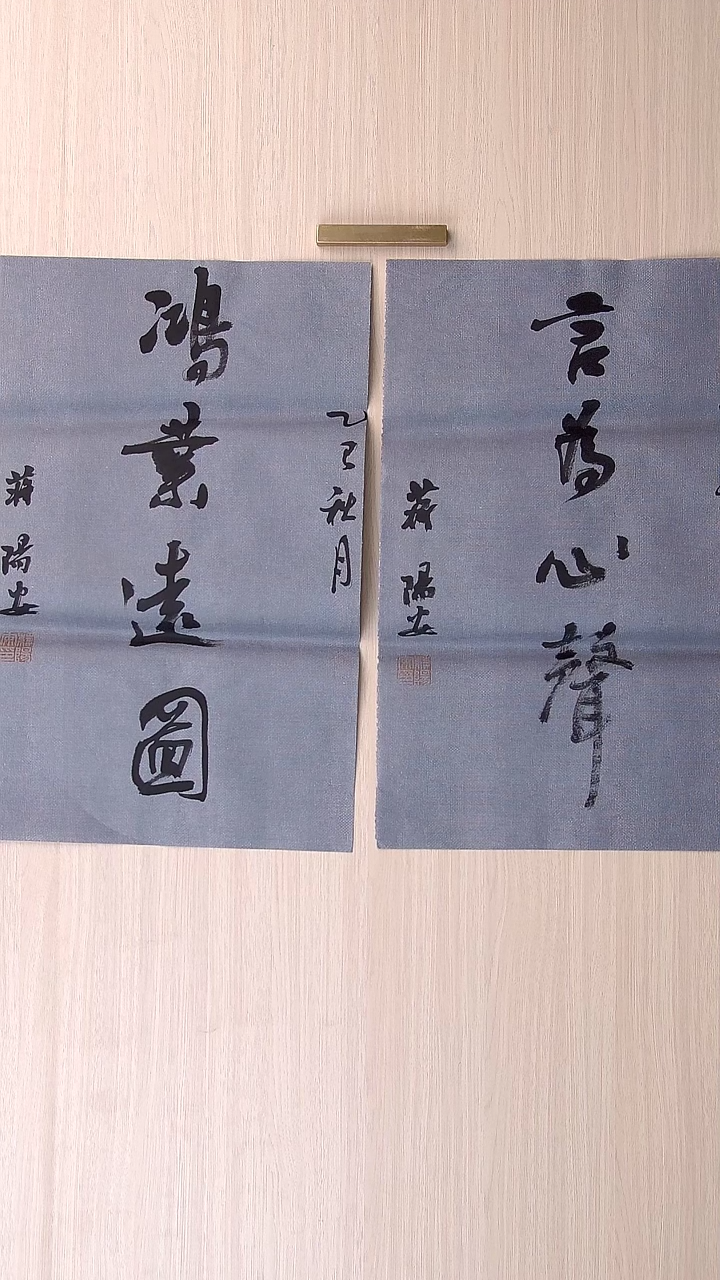 言為心聲
蔣陽安
乙巳秋月
鴻業遠圖
蔣陽安